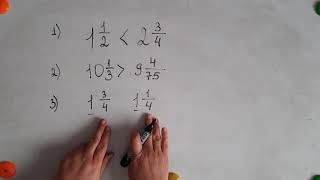 1) 1 1/2 < 2 3/4
2) 10 1/3 > 9 4/75
3) 1 3/4 1 1/4